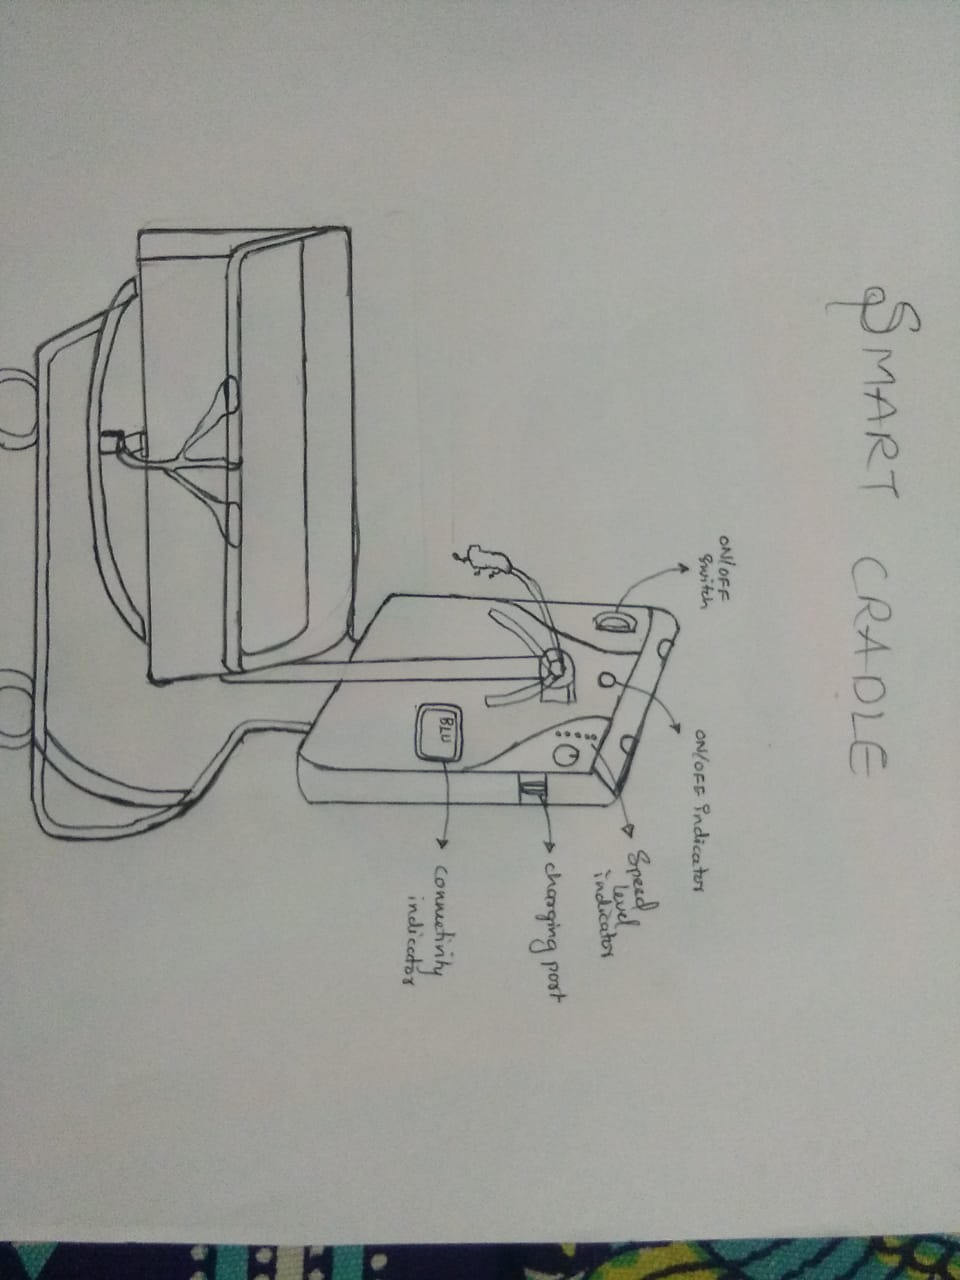 SMART CRADLE
ON/OFF
Switch
ON/OFF Indicator
Speed
level
indicator
charging port
BLU
connectivity
indicator